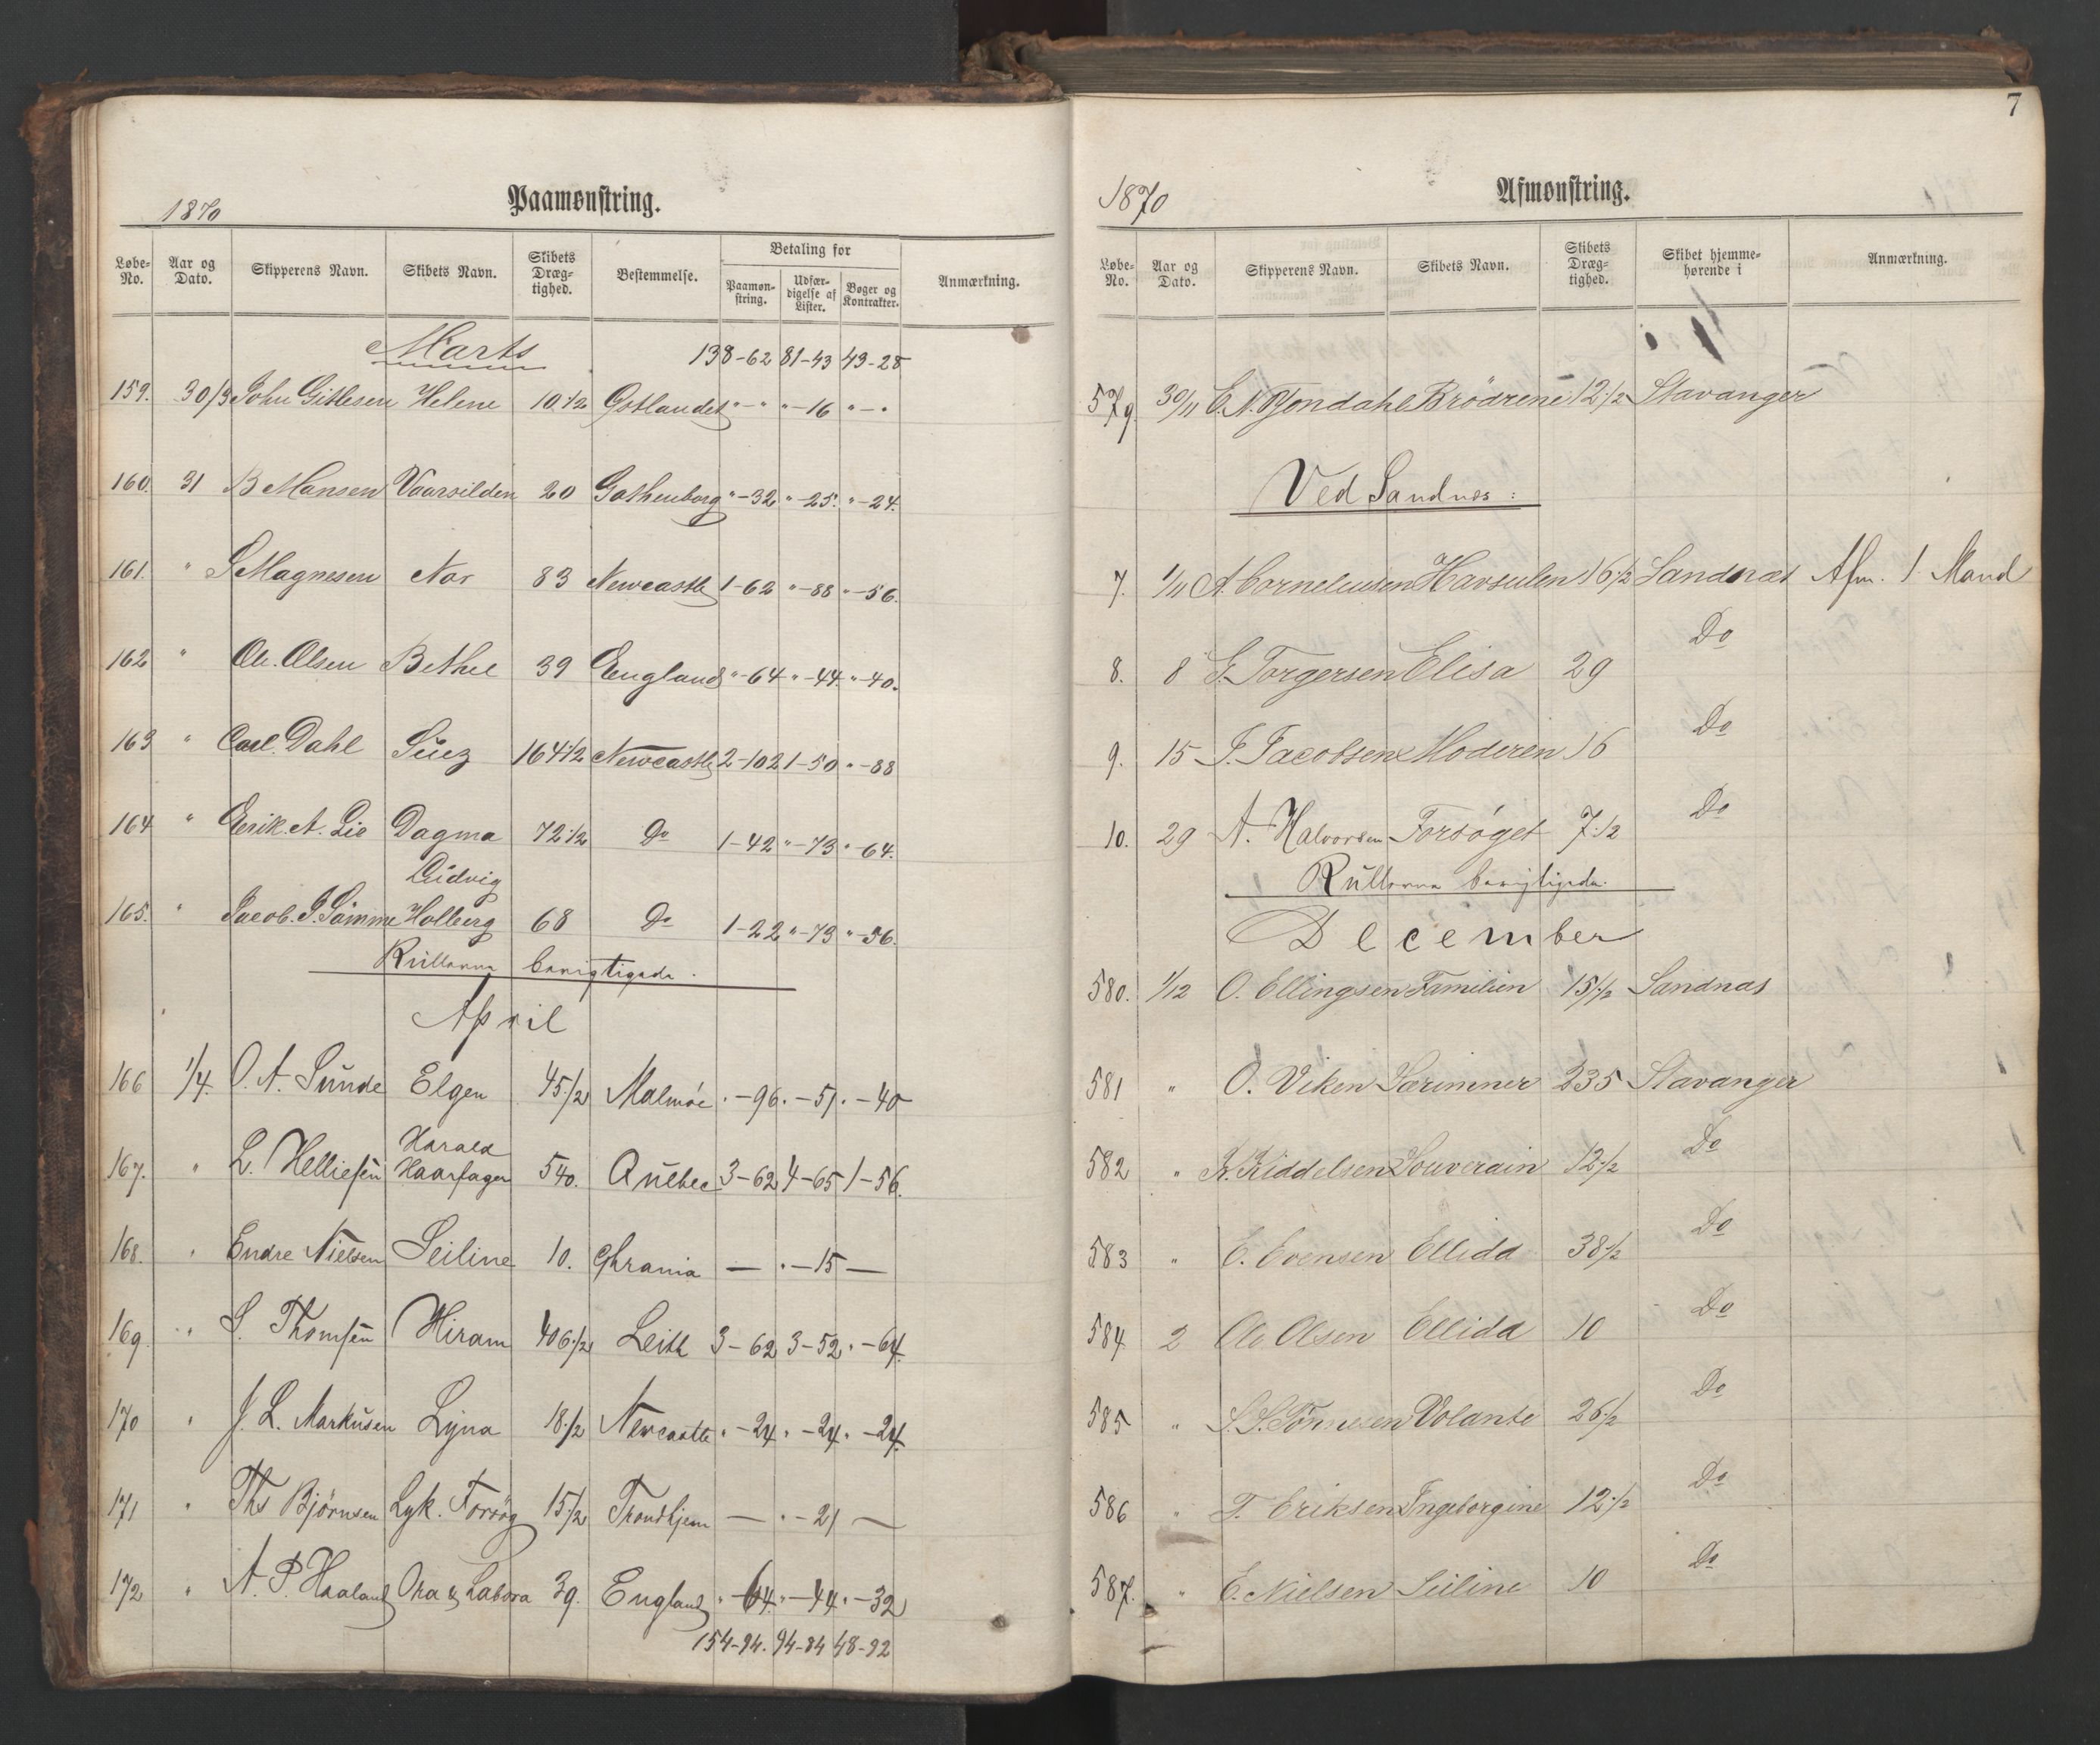 1870
Paamønstring.
Løbe-No. Aar og Dato. Skipperens Navn. Skibets Navn. Skibets Dræg-tighed. Bestemmelse. Betaling for Paamøn-string. Udfær-digelse af Lister. Bøger og Kontrakter. Anmærkning.
Marts 138-62 81-43 43-28
159. 30/3 John Gitlesen Helene 10 1/2 Ostlandet " - " " - 16 " - "
160. 31 B Hansen Vaarsilden 20 Gothenborg " - 32 " - 25. " - 24.
161. " S Magnesen Nor 83 Newcastle 1-62 " - 88 " - 56.
162 " Ole. Olsen Bethel 39 England " - 64 " - 44. " - 40.
163 " Carl. Dahl Suez 164 1/2 Newcastle 2-102 1-50 " - 88
164 " Erik. A. Lie Dagma 72 1/2 Do 1-42 " - 73 " - 64.
Ludvig
165. " Jacob. J. Sømme Holberg 68 Do 1-22 " - 73 " - 56.
Rullerne berigtigede.
April
166 1/4. O. A. Sunde Elgen 45 1/2 Malmöe " - 96 " - 51 " - 40
Harald
167. " L. Helliesen Haarfager 540. Quebec 3-62 4-65 1-56.
168. " Endre Nielsen Seiline 10. Chrania — " - 15 —
169 " S. Thomsen Hiram 406 1/2 Leith 3-62 3-52 " - 64.
170 " J. L. Markusen Lyna 18 1/2 Newcastle " - 24 " - 24 " - 24.
171 " Ths Bjørnsen Lyk. Forsøg 15 1/2 Trondhjem — " - 21 —
172 " A. P. Haaland Ora & Labora 39. England " - 64. " - 44 " - 32
154-94. 94-84 48-92
7
1870
Afmønstring.
Løbe-No. Aar og Dato. Skipperens Navn. Skibets Navn. Skibets Dræg-tighed. Skibet hjemme-hørende i Anmærkning.
579. 30/11 Brødrene 12 1/2 Stavanger
Ved Sandnes:
7. 1/11 A. Corneleusen Havsulen 16 1/2 Sandnæs Afm. 1 Mand
8. 8 G. Torgersen Elisa 29 Do
9. 15 J. Jacobsen Moderen 16 Do
10. 29 A. Halvorsen Forsøget 7 1/2 Do
Rullerne berigtigede.
December
580. 1/12 O. Ellingsen Familien 15 1/2 Sandnæs
581 " O. Viken Særimner 235 Stavanger
582 " K. Kiddelsen Souverain 12 1/2 Do
583 " E. Evensen Ellida 38 1/2 Do
584 2 Ole Olsen Ellida 10 Do
585 " S. S. Tönnesen Volante 26 1/2 Do
586 " T. Eriksen Ingeborgine 12 1/2 Do
587. " E. Nielsen Seiline 10 Do